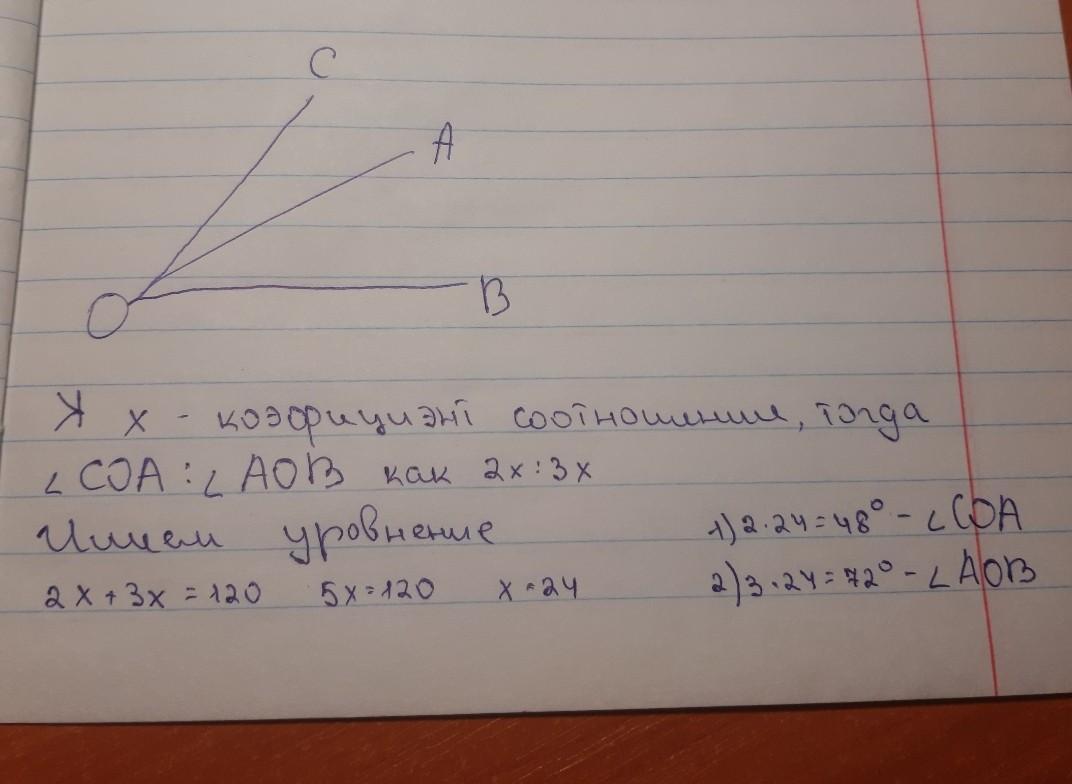 C
A
O
B
x - коэфрициэнт соотношении, тогда
∠COA : ∠AOB как 2x:3x
Имеем уровнение
2x+3x=120 5x=120 x=24
1) 2·24=48° - ∠COA
2) 3·24=72° - ∠AOB